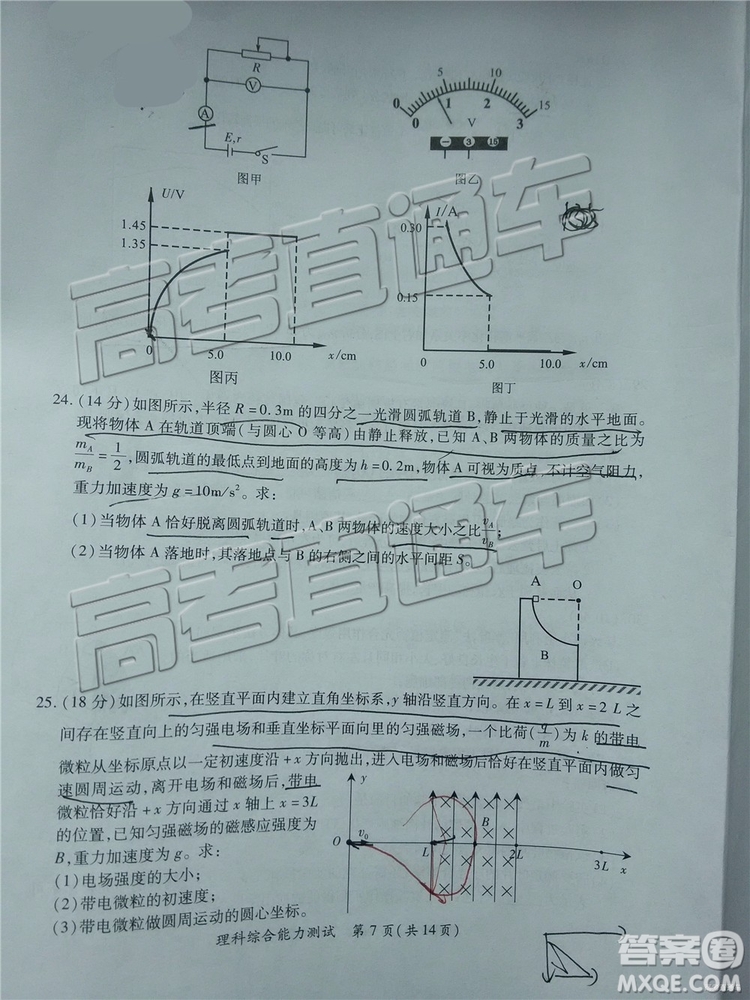 R
V
A
E,r
S
图甲
0 5 10 15
0 1 2 3
V
− 3 15
图乙
U/V
1.45
1.35
0 5.0 10.0 x/cm
图丙
I/A
0.30
0.15
0 5.0 10.0 x/cm
图丁
高考直通车
24.(14分)如图所示,半径R=0.3m的四分之一光滑圆弧轨道B,静止于光滑的水平地面。
现将物体A在轨道顶端(与圆心O等高)由静止释放,已知A、B两物体的质量之比为
m_A/m_B=1/2,圆弧轨道的最低点到地面的高度为h=0.2m,物体A可视为质点,不计空气阻力,
重力加速度为g=10m/s²。求:
(1)当物体A恰好脱离圆弧轨道时,A、B两物体的速度大小之比v_A/v_B;
(2)当物体A落地时,其落地点与B的右侧之间的水平间距S。
高考直通车
A O
B
25.(18分)如图所示,在竖直平面内建立直角坐标系,y轴沿竖直方向。在x=L到x=2L之
间存在竖直向上的匀强电场和垂直坐标平面向里的匀强磁场,一个比荷(q/m)为k的带电
微粒从坐标原点以一定初速度沿+x方向抛出,进入电场和磁场后恰好在竖直平面内做匀
速圆周运动,离开电场和磁场后,带电
微粒恰好沿+x方向通过x轴上x=3L
的位置,已知匀强磁场的磁感应强度为
B,重力加速度为g。求:
(1)电场强度的大小;
(2)带电微粒的初速度;
(3)带电微粒做圆周运动的圆心坐标。
y
B
O v₀ L 2L 3L x
理科综合能力测试 第7页(共14页)
答案圈
MXQE.COM